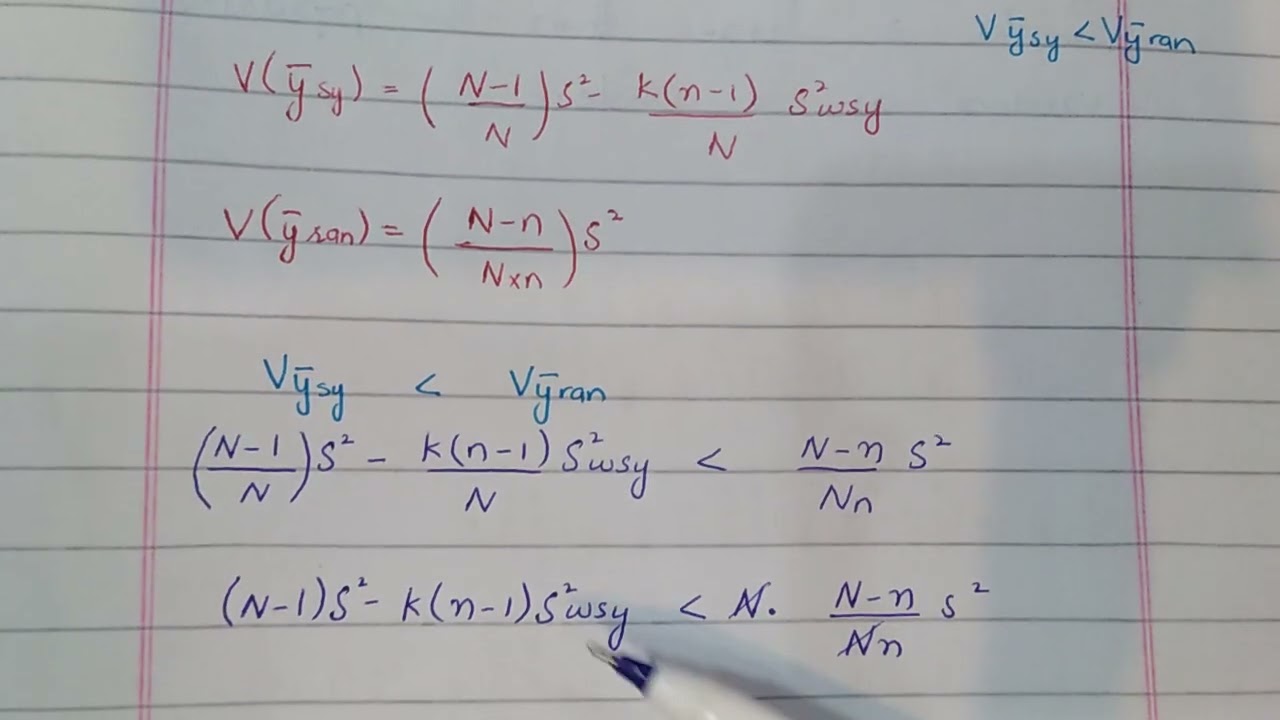 Vȳsy < Vȳran
V(ȳsy) = (N-1/N)S² - k(n-1)/N S²wsy
V(ȳran) = (N-n/N×n)S²
Vȳsy < Vȳran
(N-1/N)S² - k(n-1)/N S²wsy < N-n/Nn S²
(N-1)S² - k(n-1)S²wsy < N. N-n/Nn S²